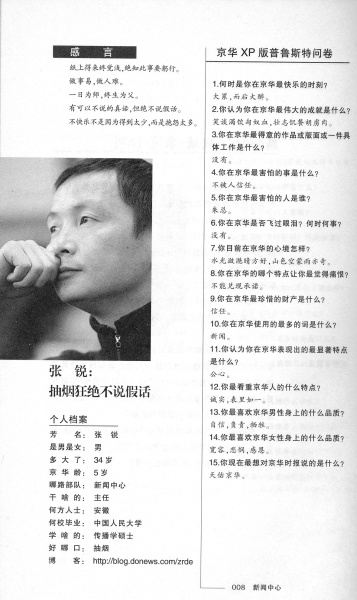 感 言
纸上得来终觉浅,绝知此事要躬行。
做事易,做人难。
一日为师,终生为父。
有可以不说的真话,但绝不说假话。
不快乐不是因为得到太少,而是抱怨太多。
张 锐:
抽烟狂绝不说假话
个人档案
芳 名: 张 锐
是男是女: 男
多 大 了: 34岁
京 华 龄: 5岁
哪路部队: 新闻中心
干 啥 的: 主任
何方人士: 安徽
何校毕业: 中国人民大学
学 啥 的: 传播学硕士
好 哪 口: 抽烟
博 客: http://blog.donews.com/zrde
京华 XP 版普鲁斯特问卷
1.何时是你在京华最快乐的时刻?
大累,而后大醉。
2.你认为你在京华最伟大的成就是什么?
笑谈渴饮匈奴血,壮志饥餐胡虏肉。
3.你在京华最得意的作品或版面或一件具
体工作是什么?
没有。
4.你在京华最害怕的事是什么?
不被人信任。
5.你在京华最害怕的人是谁?
朱总。
6.你在京华是否飞过眼泪? 何时何事?
没有。
7.你目前在京华的心境怎样?
水光潋滟晴方好,山色空蒙雨亦奇。
8.你在京华的哪个特点让你最觉得痛恨?
不能兑现承诺。
9.你在京华最珍惜的财产是什么?
信任。
10.你在京华使用的最多的词是什么?
新闻。
11.你认为你在京华表现出的最显著特点
是什么?
公心。
12.你最看重京华人的什么特点?
诚实,表里如一。
13.你最喜欢京华男性身上的什么品质?
自信,负责,牺牲。
14.你最喜欢京华女性身上的什么品质?
宽容,悲悯,感恩。
15.你现在最想对京华时报说的是什么?
天佑京华。
008 新闻中心